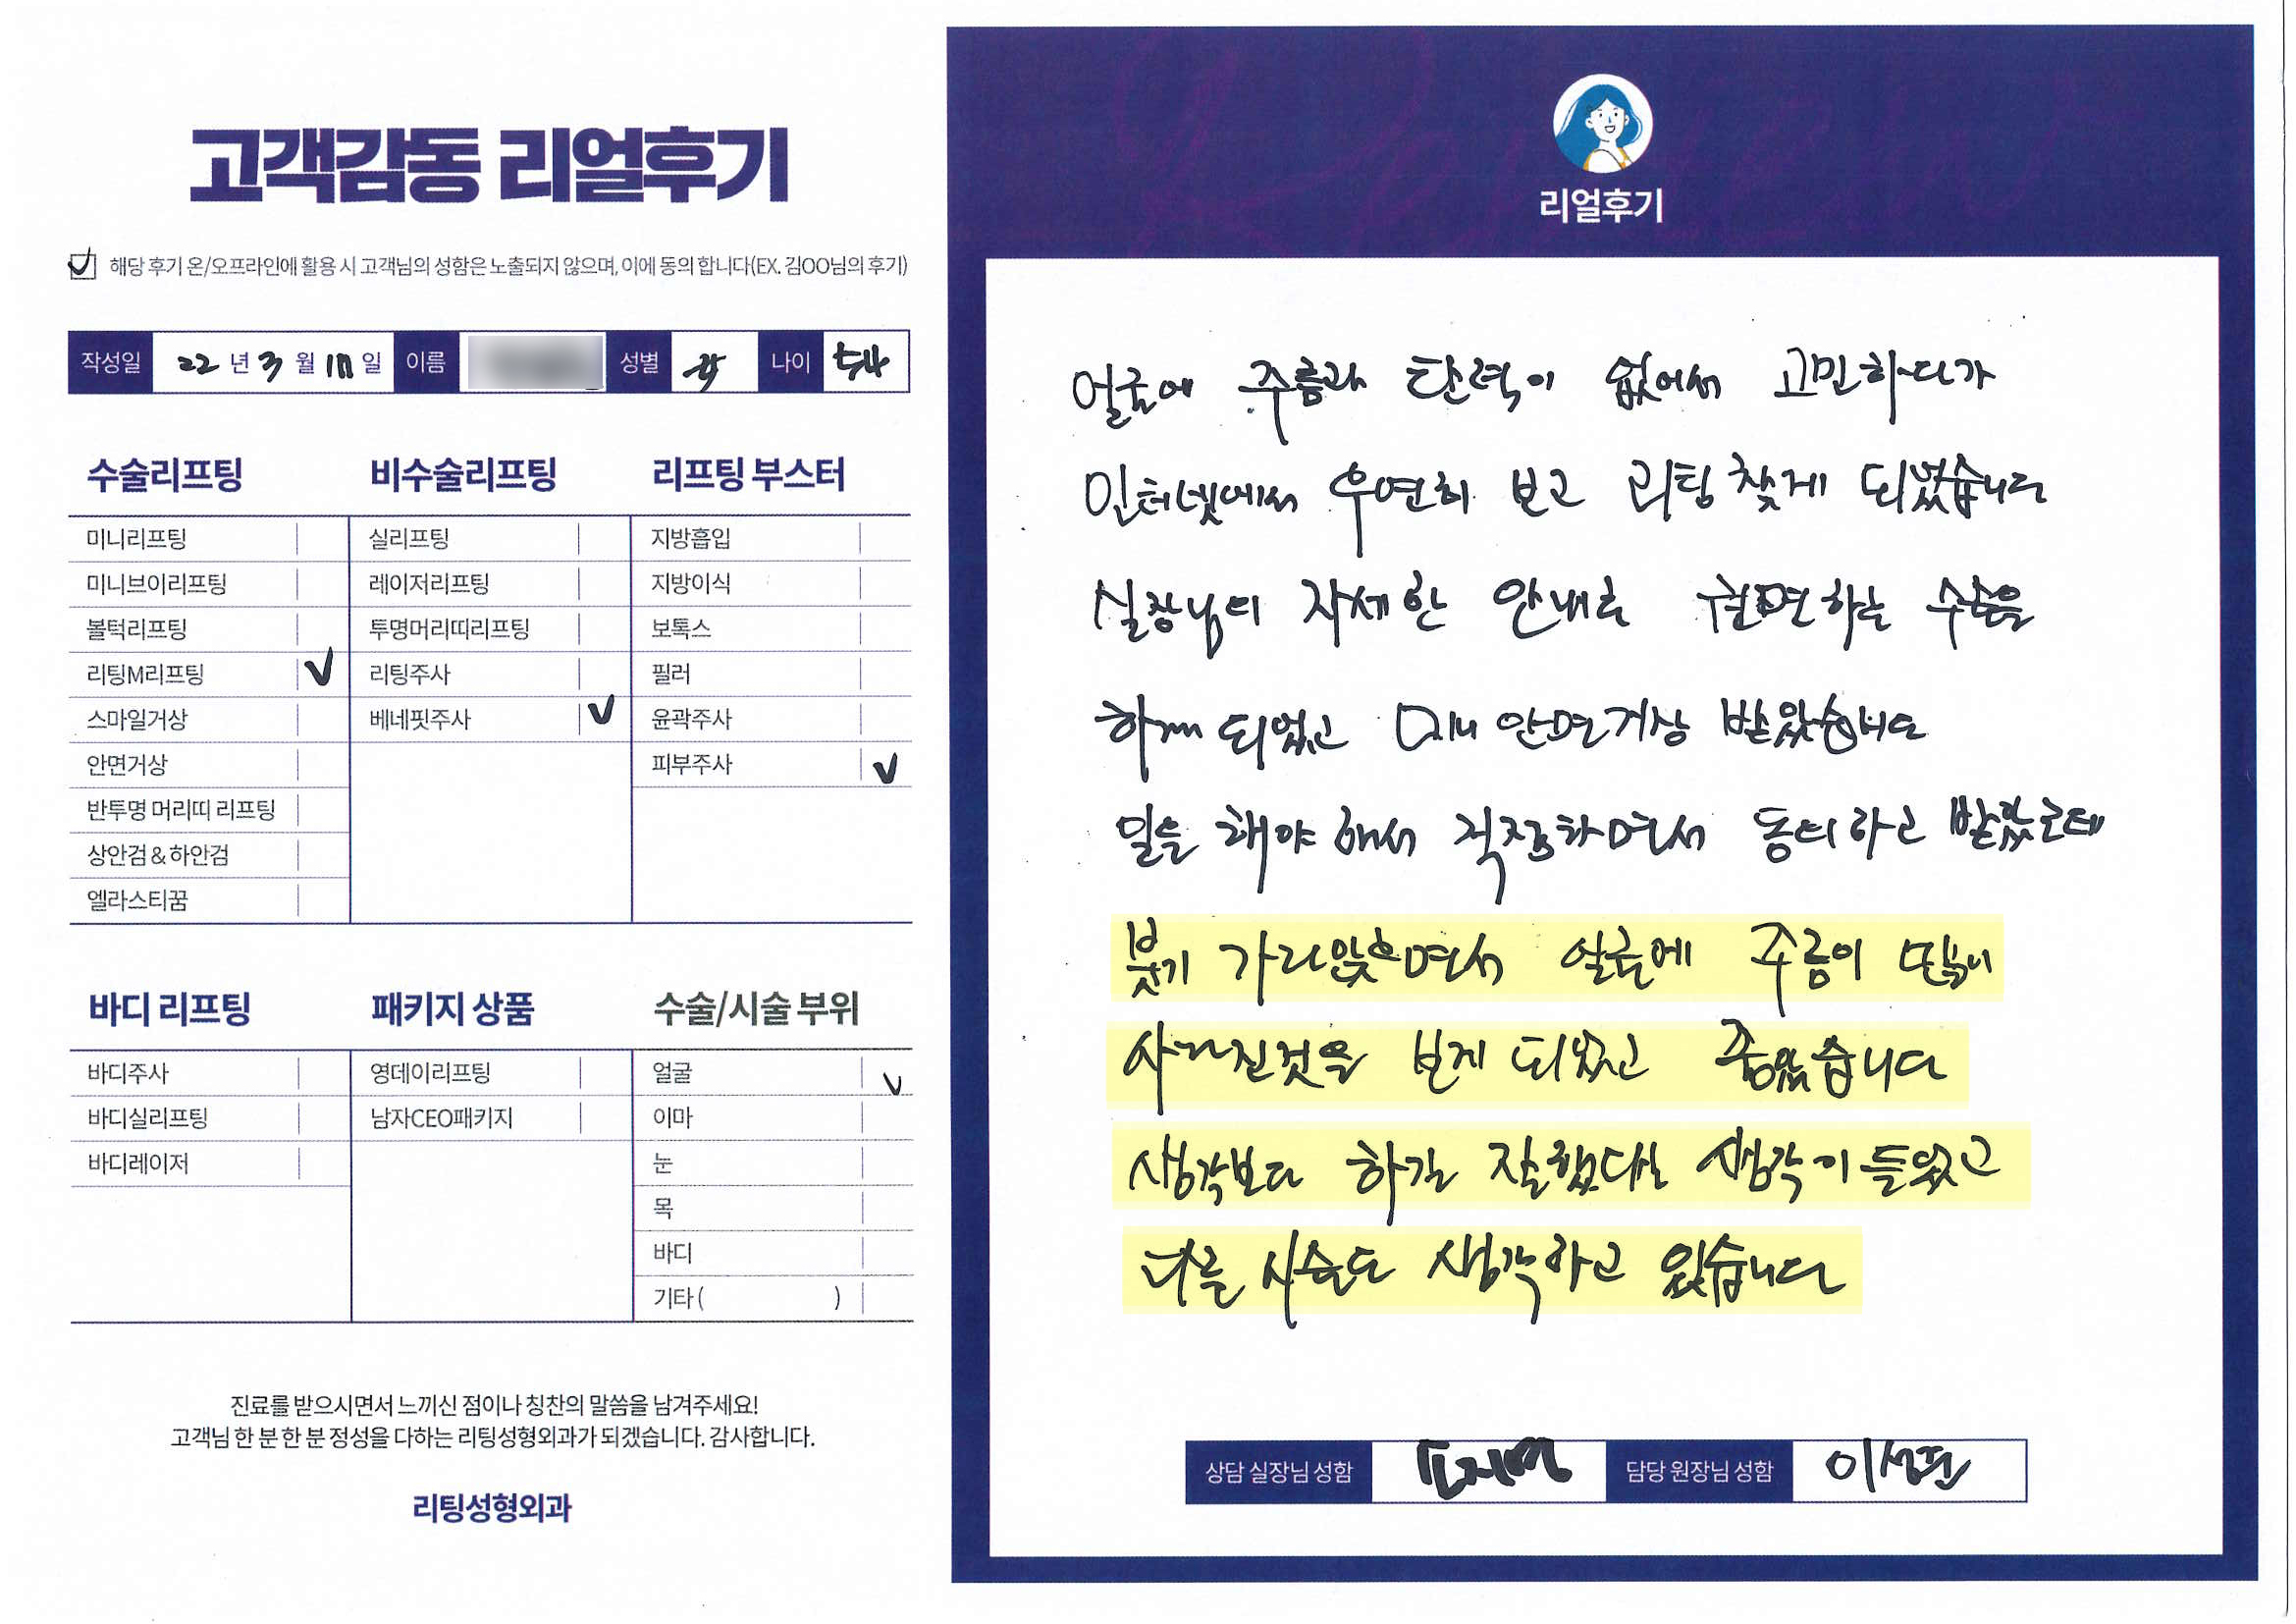 고객감동 리얼후기
해당 후기 온/오프라인에 활용 시 고객님의 성함은 노출되지 않으며, 이에 동의 합니다(EX. 김OO님의 후기)
작성일 22 년 3 월 일 이름 성별 나이
수술리프팅
미니리프팅
미니브이리프팅
볼턱리프팅
리팅M리프팅
스마일거상
안면거상
반투명 머리띠 리프팅
상안검 & 하안검
엘라스티꿈
비수술리프팅
실리프팅
레이저리프팅
투명머리띠리프팅
리팅주사
베네핏주사
리프팅 부스터
지방흡입
지방이식
보톡스
필러
윤곽주사
피부주사
바디 리프팅
바디주사
바디실리프팅
바디레이저
패키지 상품
영데이리프팅
남자CEO패키지
수술/시술 부위
얼굴
이마
눈
목
바디
기타 ( )
진료를 받으시면서 느끼신 점이나 칭찬의 말씀을 남겨주세요!
고객님 한 분 한 분 정성을 다하는 리팅성형외과가 되겠습니다. 감사합니다.
리팅성형외과
리얼후기
얼굴에 주름과 탄력이 없어서 고민하다가
인터넷에서 우연히 보고 리팅 찾게 되었습니다
실장님의 자세한 안내로 권면하는 수술을
하게 되었고 미니 안면거상 받았습니다
일을 해야 해서 걱정하면서 동의하고 받았는데
붓기 가라앉으면서 얼굴에 주름이 많이
사라진것을 보게 되었고 좋았습니다
생각보다 하길 잘했다는 생각이 들었고
다른 시술도 생각하고 있습니다
상담 실장님 성함 담당 원장님 성함